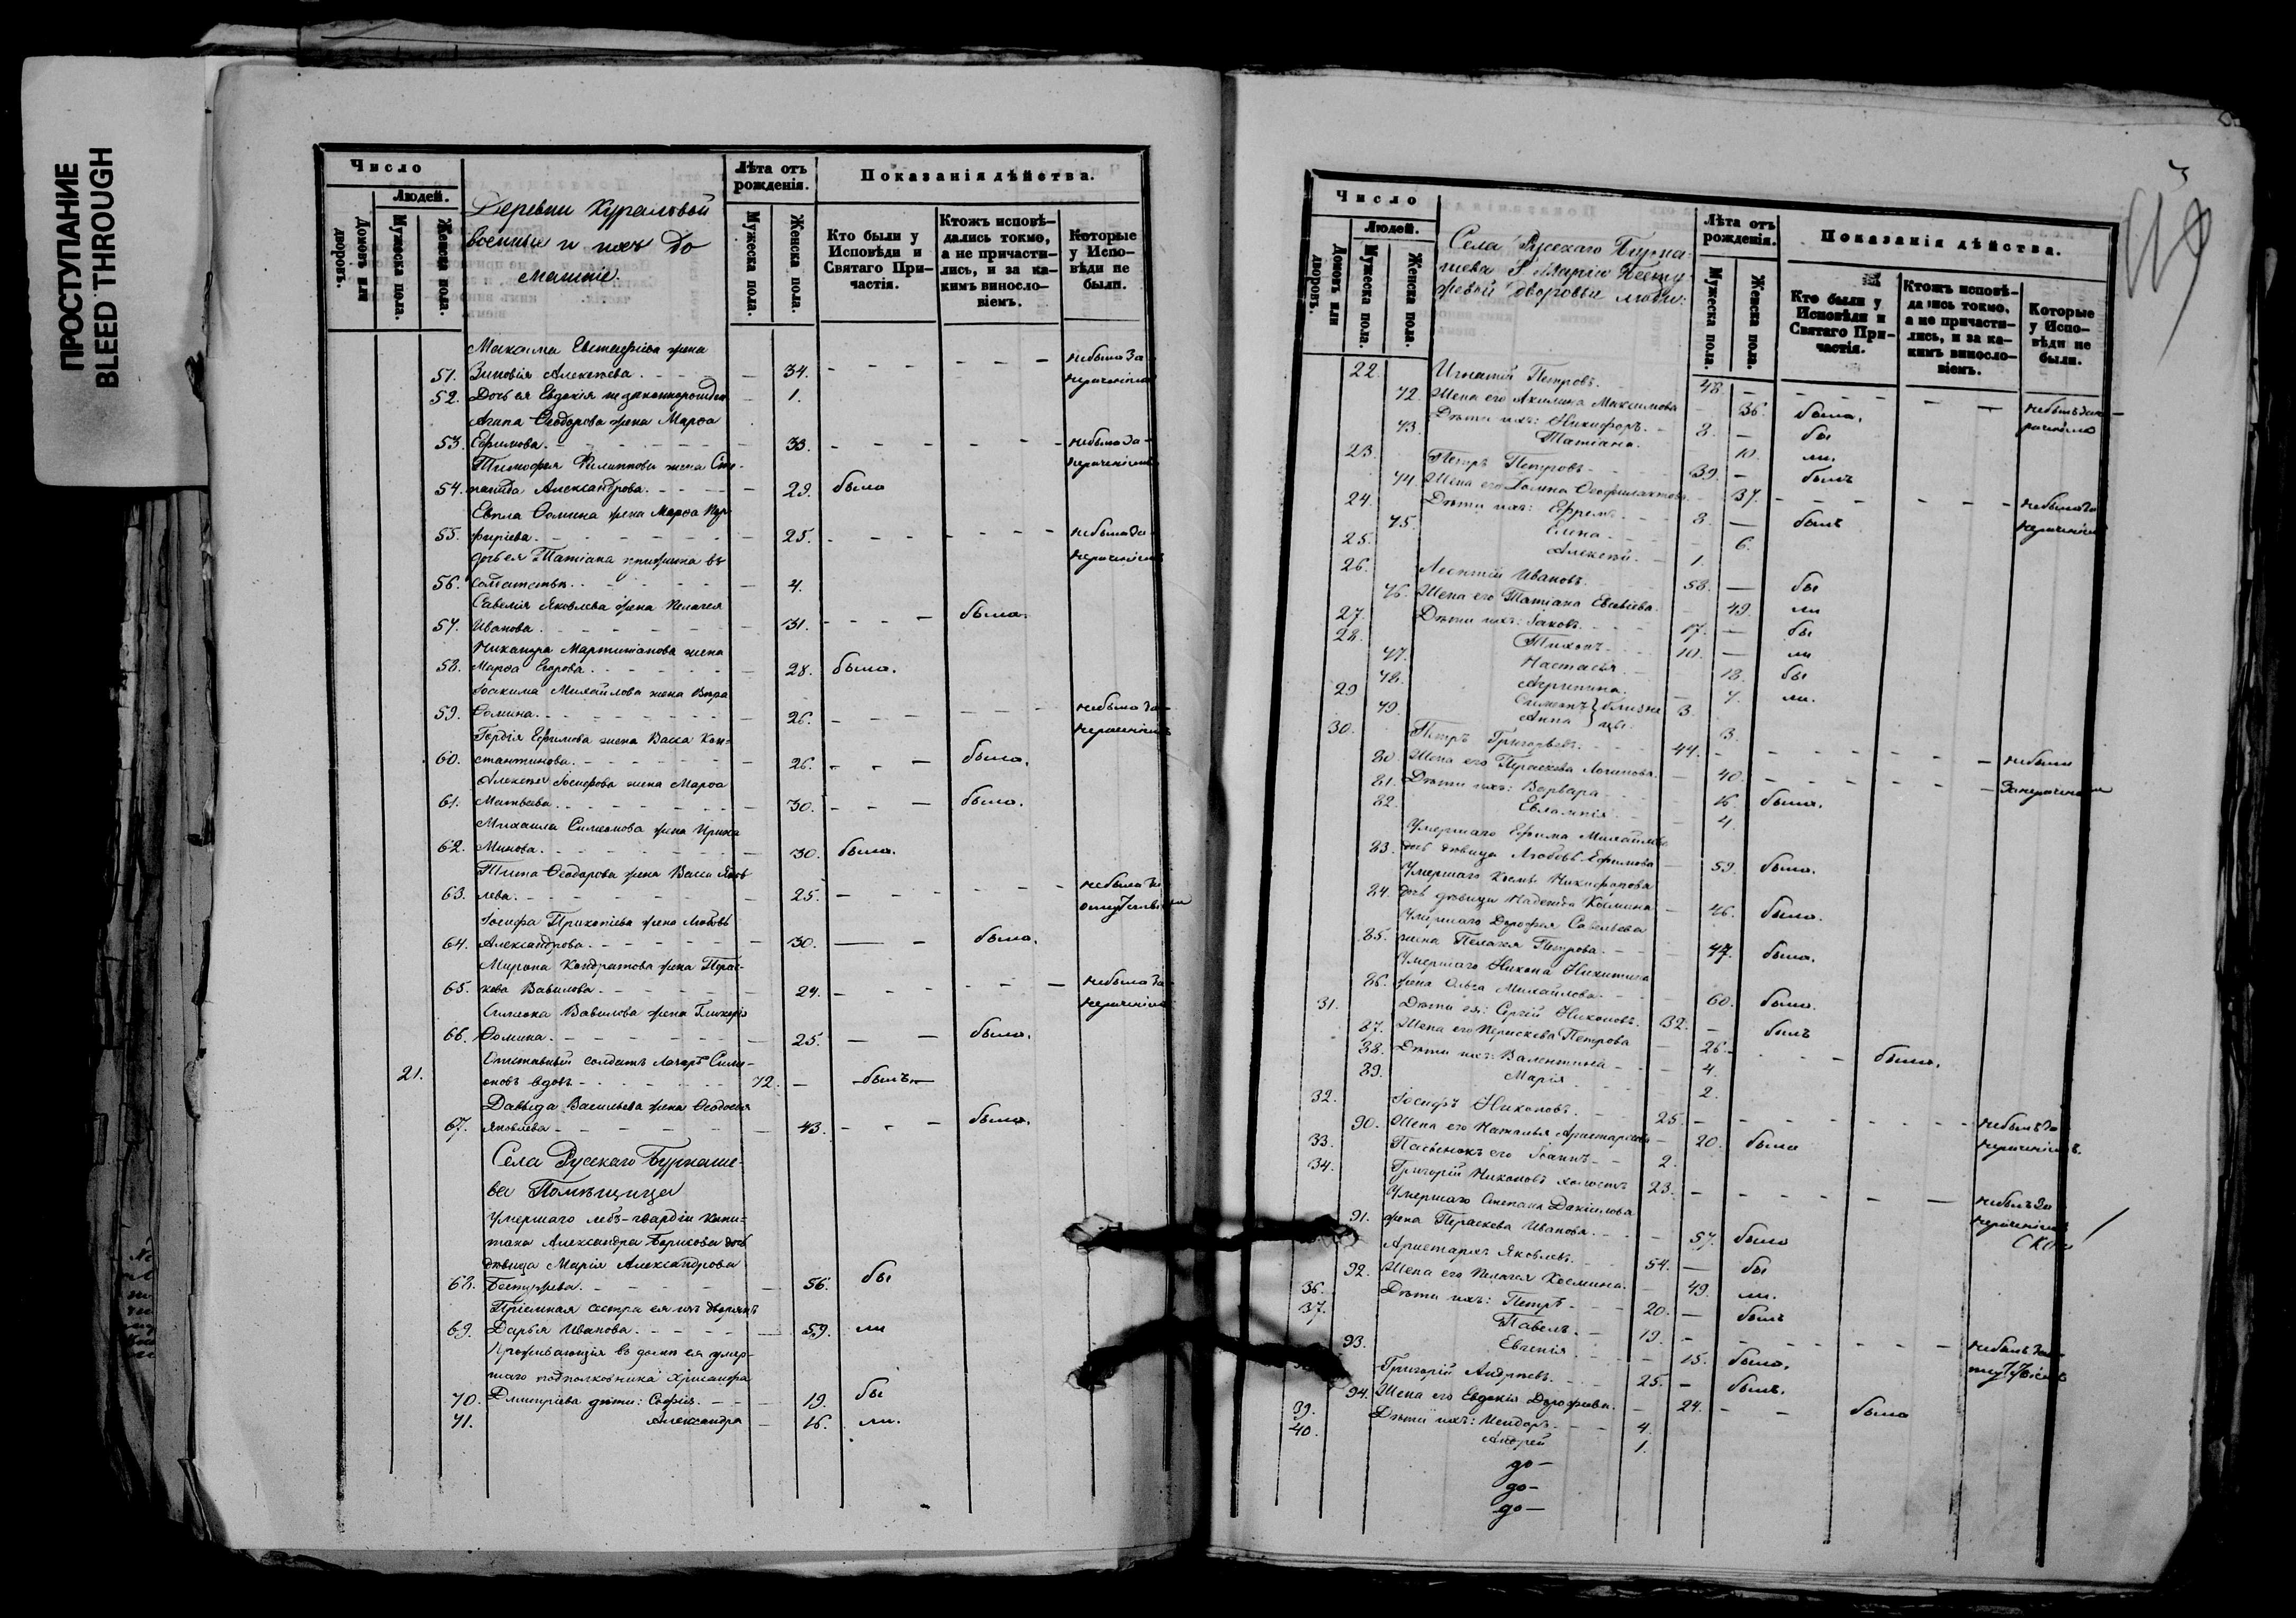 ПРОСТУПАНИЕ
BLEED THROUGH
Число
Людей.
Домовъ или дворовъ.
Мужеска пола.
Женска пола.
Деревни Кураловой
военные и ихъ до
машніе.
Лѣта отъ рожденія.
Мужеска пола.
Женска пола.
Показанія дѣйства.
Кто были у Исповѣди и Святаго При-частія.
Ктожъ исповѣ-дались токмо, а не причасти-лись, и за ка-кимъ винosло-віемъ.
Которые у Испо-вѣди не были.
Максима Евстафіева жена
51. Зиновія Алексѣева. 34. небыла за
нераченіемъ
52. Дочь ея Евдокія незаконнорожден 1.
Агапа Ѳеодорова жена Марѳа
53. Ефимова. 33. небыла за
нераченіемъ
Тимофея Филиппова жена Сте-
54. панида Александрова. 29. была
Евпла Ѳомина жена Марѳа Пор
55. фиріева. 25. небыла за
нераченіемъ
дочь ея Татіана прижита въ
56. солдатствѣ. 4.
Савелія Яковлева жена Пелагея
57. Иванова. 31. была.
Никанора Мартиніанова жена
58. Марѳа Егорова. 28. была.
Іоакима Михайлова жена Вѣра
59. Ѳомина. 26. небыла за
нераченіемъ
Гордія Ефимова жена Васса Кон-
60. стантинова. 26. была.
Алексѣя Іосифова жена Марѳа
61. Матвѣева. 30. была.
Михаила Симеонова жена Ирина
62. Минова. 30. была.
Тита Ѳеодорова жена Васса Яков
63. лева. 25. небыла за
отлучкою
Іосифа Прокопіева жена Любовь
64. Александрова. 30. была.
Мирона Кондратова жена Парас-
65. кева Вавилова. 24. небыла за
нераченіемъ
Симеона Вавилова жена Гликерія
66. Ѳомина. 25. была.
Отставный солдатъ Лазарь Симе-
21. оновъ вдовъ 72. былъ
Давыда Васильева жена Ѳеодосья
67. Яковлева 43. была.
Села Русскаго Бурнаше-
ва Помѣщица
Умершаго лебъ-гвардіи капи-
тана Александра Борисова дочь
дѣвица Марія Александрова
68. Бестужева. 56. бы
Пріемная сестра ея изъ дворянъ
69. Дарья Иванова. 59. ли
Проживающія въ домѣ ея умер-
шаго подполковника Хрисанфа
70. Дмитріева дѣти: Софія. 19. бы
71. Александра 16. ли.
Число
Людей.
Домовъ или дворовъ.
Мужеска пола.
Женска пола.
Села Русскаго Бурна
шева Г. Маріи Бесту
жевой дворовые люди:
Лѣта отъ рожденія.
Мужеска пола.
Женска пола.
Показанія дѣйства.
Кто были у Исповѣди и Святаго При-частія.
Ктожъ исповѣ-дались токмо, а не причасти-лись, и за ка-кимъ винosло-віемъ.
Которые у Испо-вѣди не были.
22. Игнатій Петровъ. 48. небылъ за не
раченіемъ
72. Жена его Акилина Максимова 36. была.
Дѣти ихъ: Никифоръ. 8. бы
73. Татіана. 10. ли.
23. Петръ Петровъ 39. былъ
74. Жена его Домна Ѳеофилактова 37. небыла за
нераченіемъ
24. Дѣти ихъ: Ефремъ. 8. былъ
75. Елена 6.
25. Алексѣй. 1.
26. Леонтій Ивановъ. 58. бы
76. Жена его Татіана Евсевіева. 49. ли
27. Дѣти ихъ: Іаковъ. 17. бы
28. Тихонъ. 10. ли
77. Настасья 13. бы
78. Агрипина. 7. ли.
29 Симеонъ } близне 3.
79. Анна } цы. 3.
30. Петръ Григорьевъ. 44. небыли
80. Жена его Параскева Логинова. 40. за нераченіемъ
81. Дѣти ихъ: Варвара 16 была.
82. Евлампія 4.
Умершаго Ефима Михайлова
83. дочь дѣвица Любовь Ефимова 59. была.
Умершаго Космы Никифорова
84. дочь дѣвица Надежда Космина 46. была.
Умершаго Дорофея Савельева
85. жена Пелагея Петрова. 47. была.
Умершаго Никона Никитина
86. жена Ольга Михайлова. 60. была.
31. Дѣти ея: Сергій Никоновъ. 32. былъ
87. Жена его Параскева Петрова 26. была.
88. Дѣти ихъ: Валентина 4.
89. Марія 2.
32. Іосифъ Никоновъ. 25. небылъ за
нераченіемъ.
90. Жена его Наталья Аристархова 20. была
33. Пасынокъ его Іоаннъ 2.
34. Григорій Никоновъ холостъ 23. небылъ за
нераченіемъ
Умершаго Степана Даніилова
91. жена Параскева Иванова. 57. была
Аристархъ Яковлевъ. 54. бы
92. Жена его Пелагея Космина. 49. ли.
36. Дѣти ихъ: Петръ. 20. былъ
37. Павелъ. 19. небылъ за о
тлучкою
93. Евгенія 15. была.
Григорій Андреевъ. 25. былъ.
94. Жена его Евдокія Дорофеева. 24. была
39. Дѣти ихъ: Исидоръ. 4.
40. Андрей 1.
до-
до-
до-